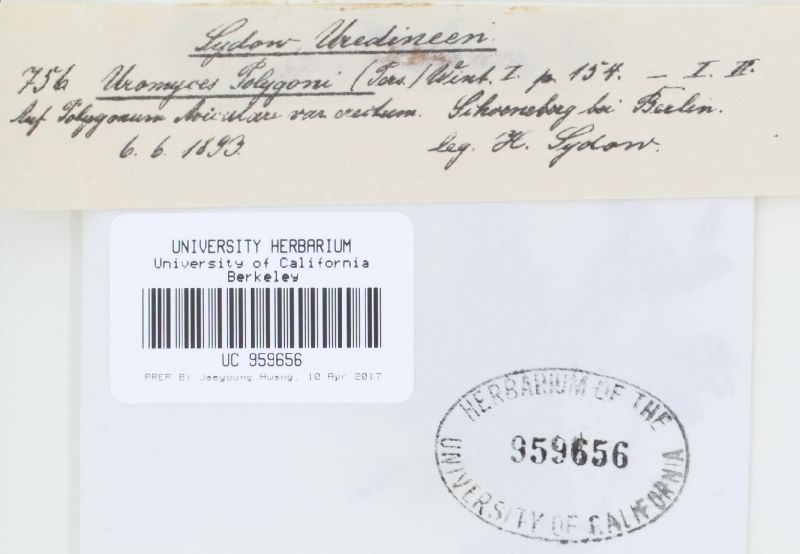 Sydow, Uredineen
756. Uromyces Polygoni (Pers.) Wint. I p. 154. — I. II.
Auf Polygonum Aviculare var. erectum. Schoeneberg bei Berlin.
6. 6. 1893. leg. H. Sydow.
UNIVERSITY HERBARIUM
University of California
Berkeley
UC 959656
PREP BY Jaeyoung Hwang, 10 Apr 2017
HERBARIUM OF THE
959656
UNIVERSITY OF CALIFORNIA